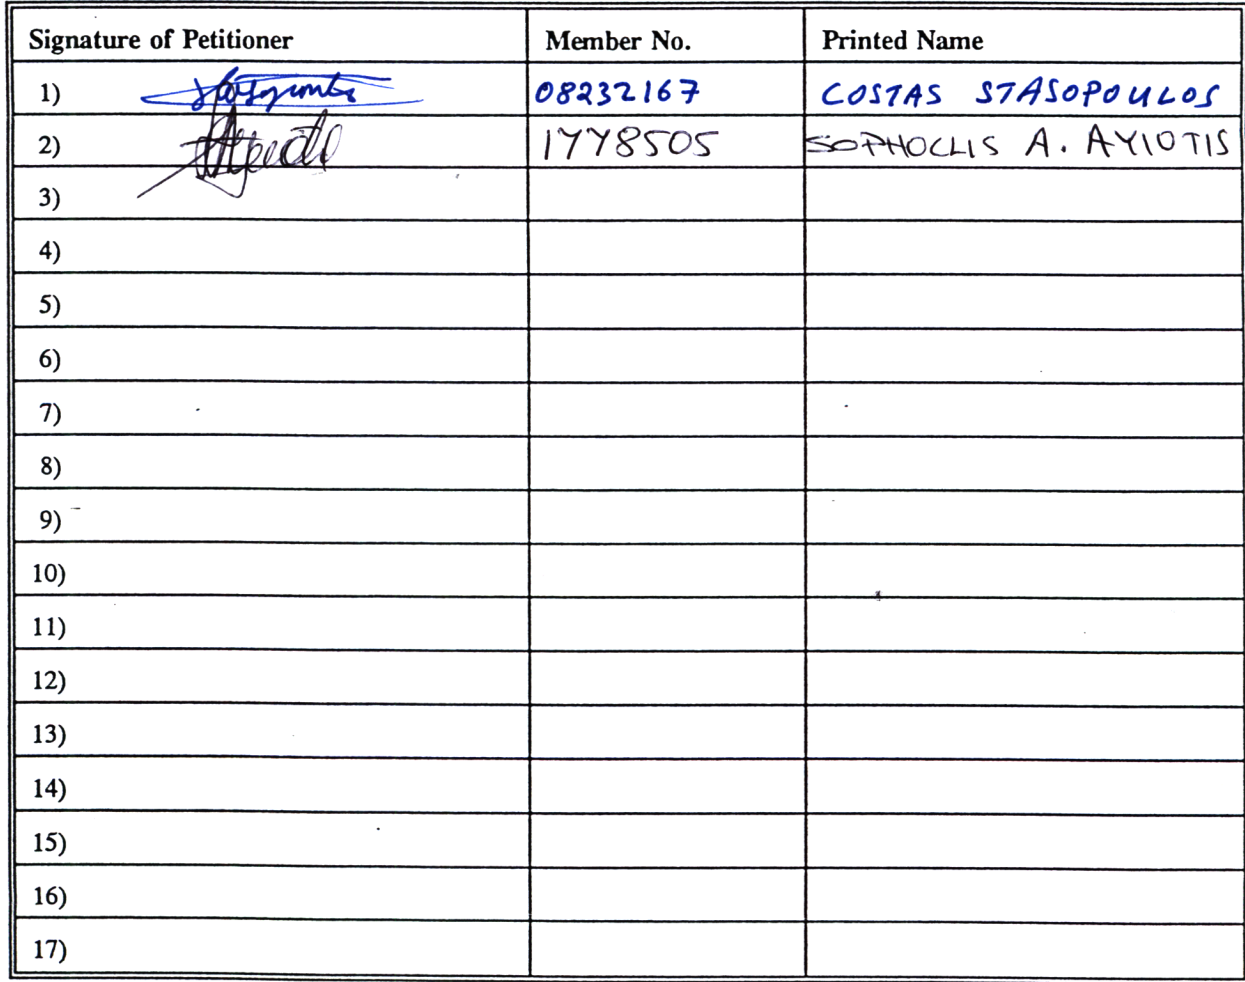 Signature of Petitioner Member No. Printed Name
1) 08232167 COSTAS STASOPOULOS
2) 1778505 SOPHOCLIS A. AYIOTIS
3)
4)
5)
6)
7)
8)
9)
10)
11)
12)
13)
14)
15)
16)
17)